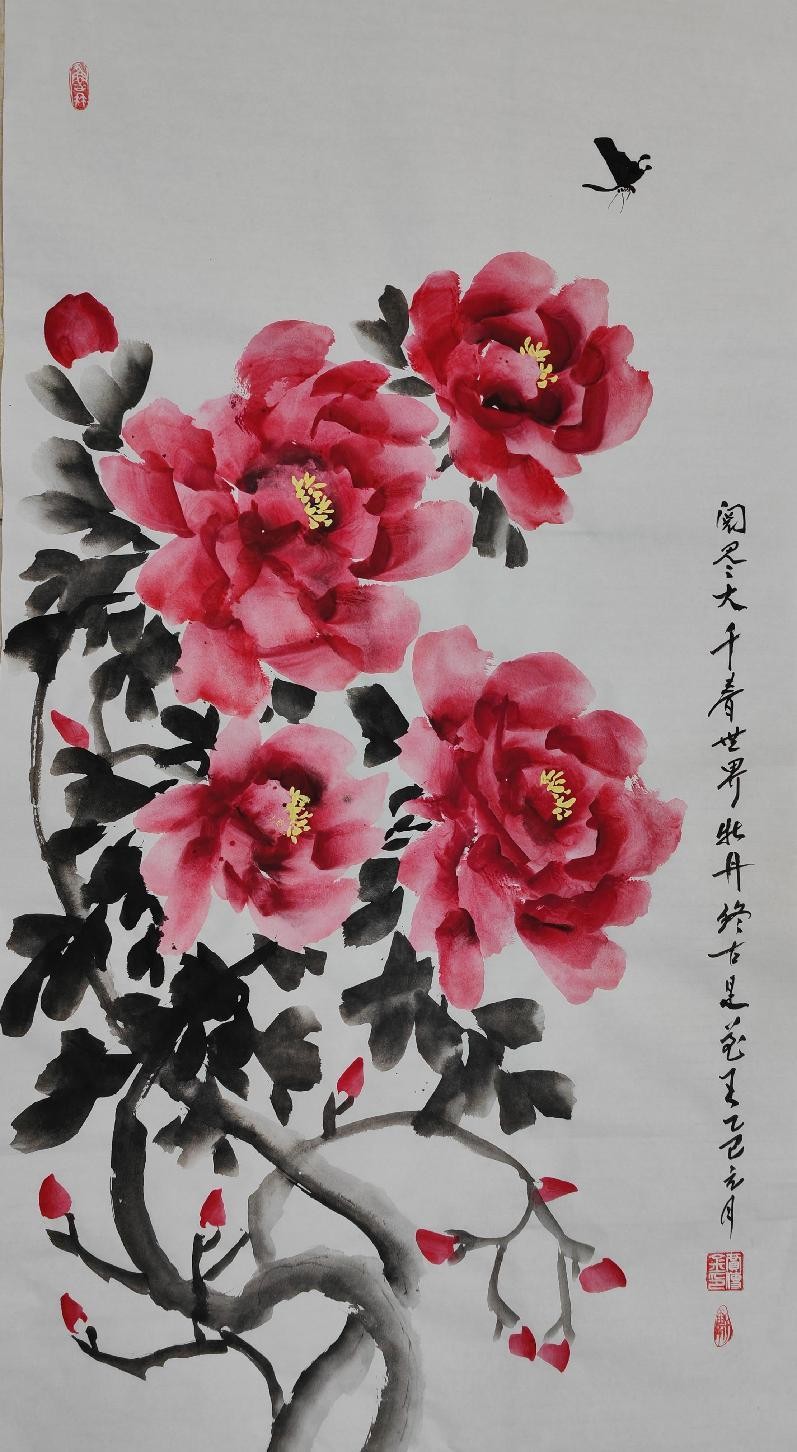 阅尽大千春世界牡丹终古是花王乙巳元月